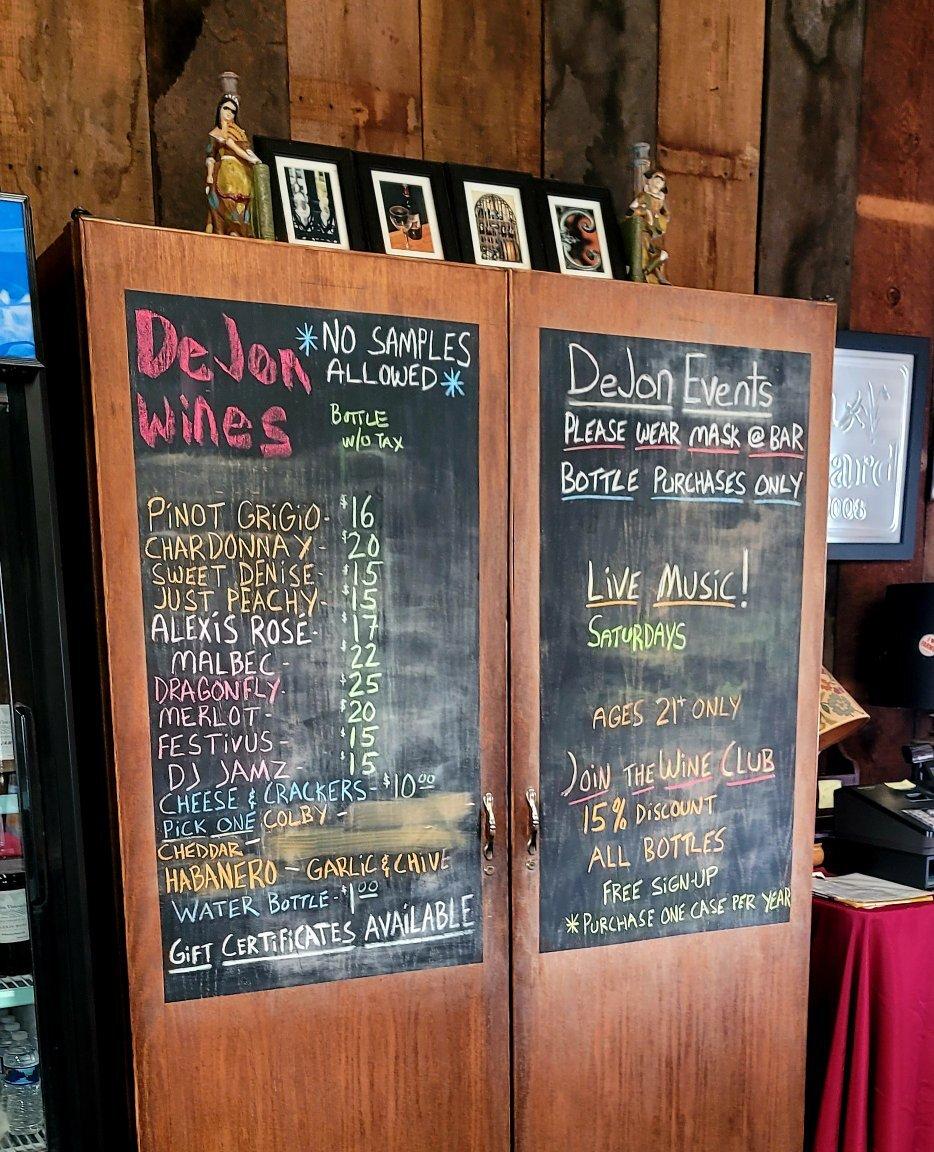 DeJon
Wines
*NO SAMPLES
ALLOWED*
BOTTLE
W/O TAX
PINOT GRIGIO- $16
CHARDONNAY- $20
SWEET DENISE- $15
JUST PEACHY- $15
ALEXIS ROSÉ- $17
MALBEC- $22
DRAGONFLY- $25
MERLOT- $20
FESTIVUS- $15
DJ JAMZ- $15
CHEESE & CRACKERS- $10.00
PICK ONE COLBY -
CHEDDAR
HABANERO - GARLIC & CHIVE
WATER BOTTLE- $1.00
GIFT CERTIFICATES AVAILABLE
DeJon Events
PLEASE WEAR MASK @ BAR
BOTTLE PURCHASES ONLY
LIVE MUSIC!
SATURDAYS
AGES 21+ ONLY
JOIN THE WINE CLUB
15% DISCOUNT
ALL BOTTLES
FREE SIGN-UP
*PURCHASE ONE CASE PER YEAR